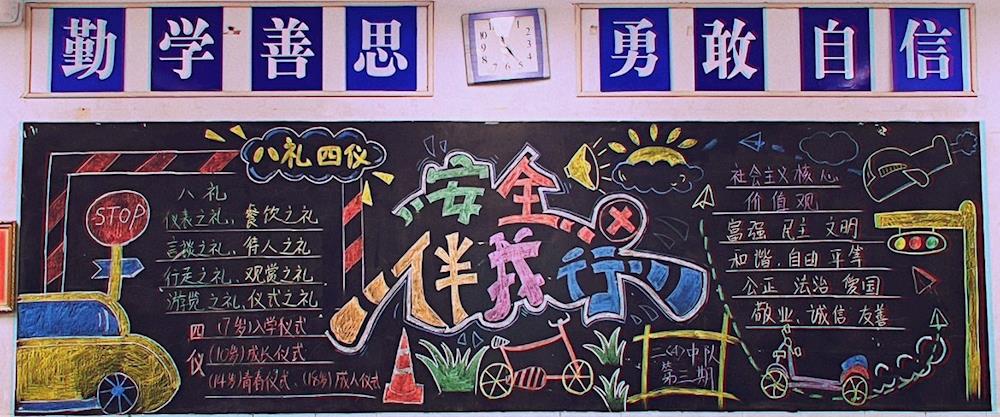 勤学善思
勇敢自信
八礼四仪
八礼
仪表之礼、餐饮之礼
言谈之礼、待人之礼
行走之礼、观赏之礼
游览之礼、仪式之礼
四仪
(7岁)入学仪式
(10岁)成长仪式
(14岁)青春仪式、(18岁)成人仪式
STOP
安全
伴我行
社会主义核心
价值观
富强 民主 文明
和谐、自由 平等
公正 法治 爱国
敬业、诚信 友善
二(4)中队
第三期